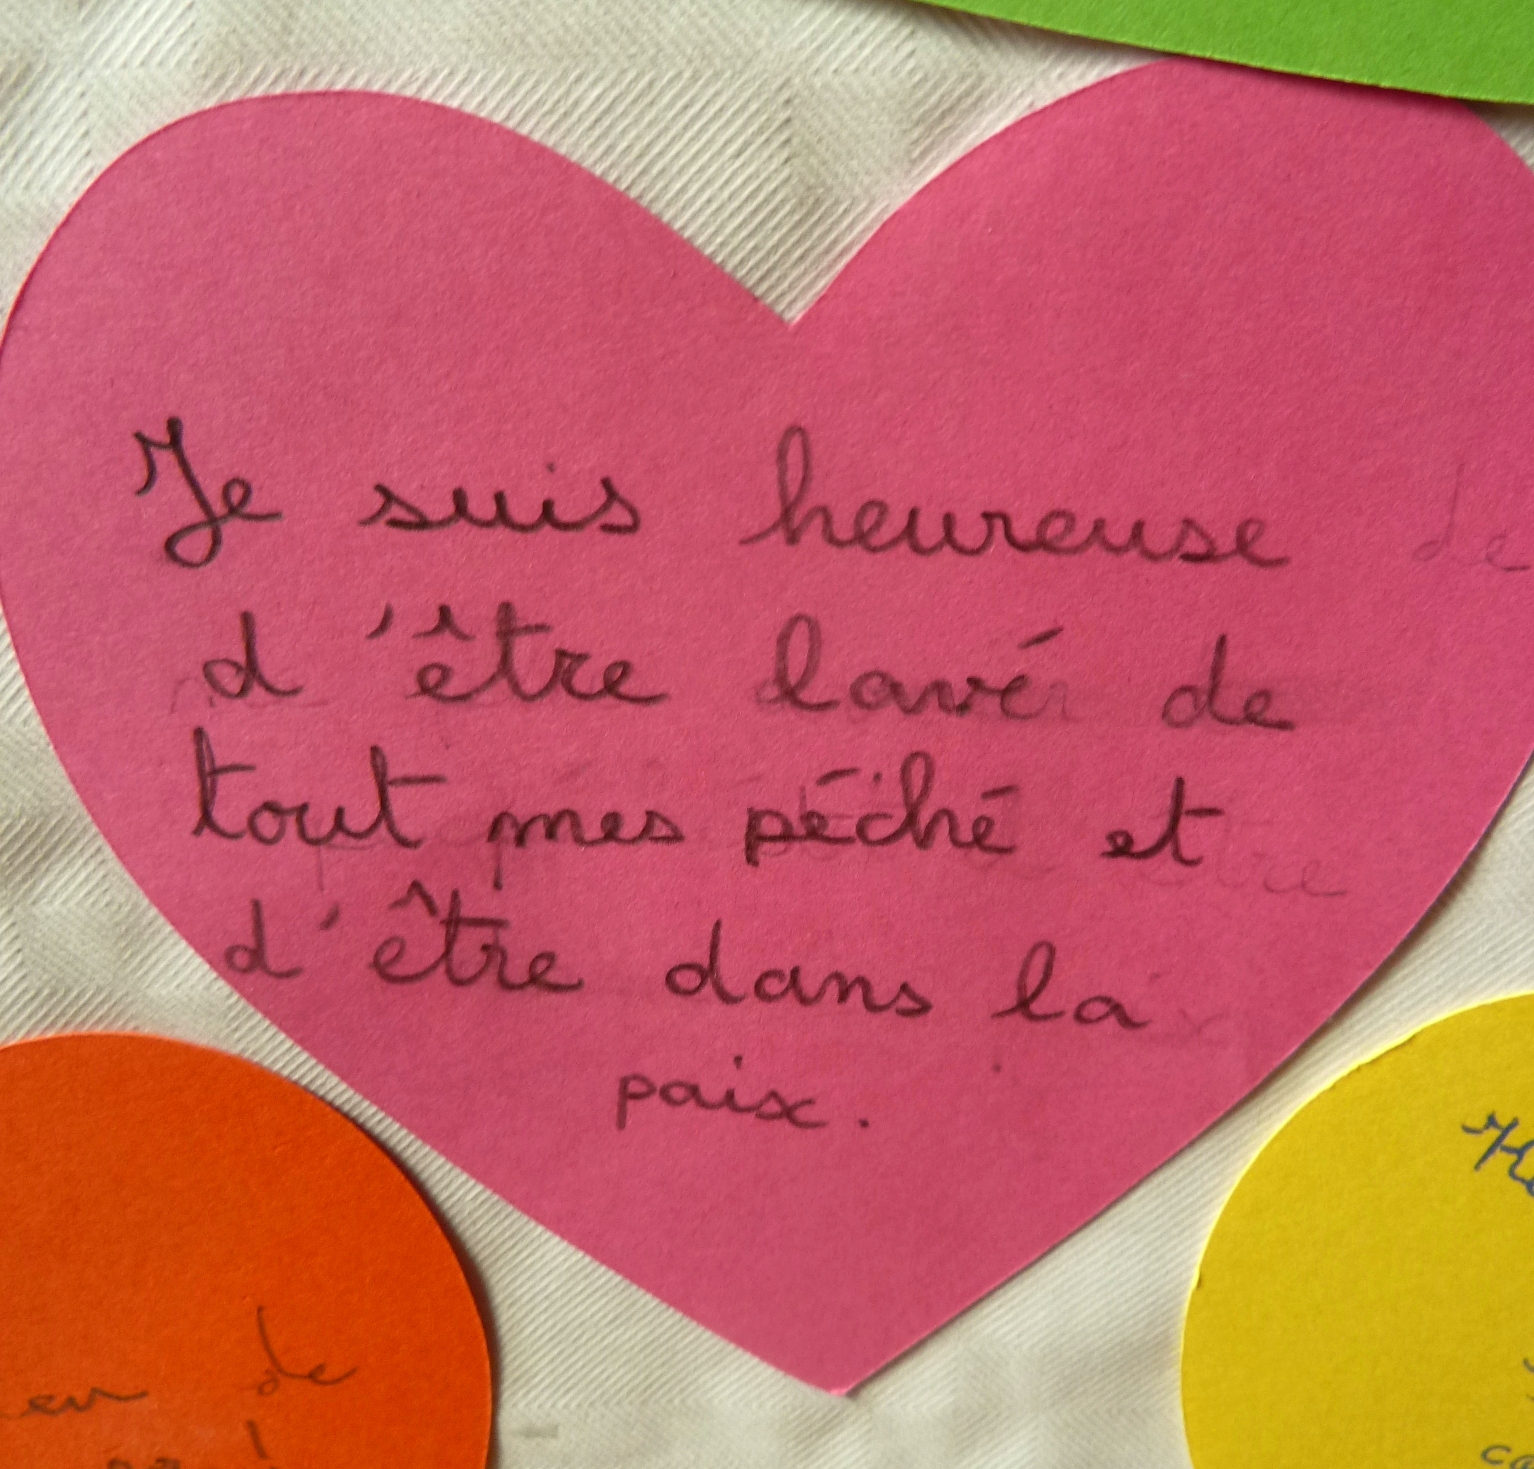 Je suis heureuse de
d'être lavé de
tout mes péché et
d'être dans la
paix.
de